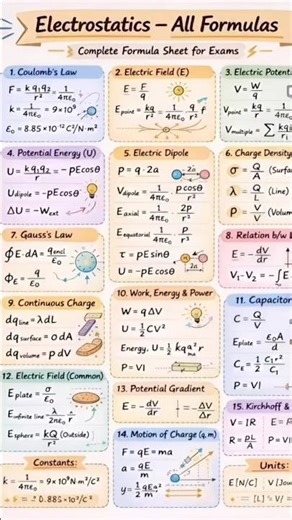 Electrostatics – All Formulas
Complete Formula Sheet for Exams
1. Coulomb's Law
F = k q₁q₂ / r² = 1 / 4πε₀
k = 1 / 4πε₀ = 9×10⁹
ε₀ = 8.85×10⁻¹² C²/N·m²
2. Electric Field (E)
E = F / q
E point = kq / r² = 1 / 4πε₀ · q / r² r̂
3. Electric Potent
V = W / q
V point = kq / r = 1 / 4πε₀
V multiple = ∑ kq₁ / r₁
4. Potential Energy (U)
U = kq₁q₂ / r = -pEcosθ
U dipole = -pEcosθ
ΔU = -W ext
5. Electric Dipole
P = q · 2a
V dipole = 1 / 4πε₀ · p cosθ / r²
E axial = 1 / 4πε₀ · 2p / r³
E equatorial = 1 / 4πε₀ · P / r³
τ = pE sinθ
U = -pE cosθ
2a
6. Charge Density
σ = Q (Surfa
λ = Q (Line)
ρ = Q / V (Volum
7. Gauss's Law
∮E·dA = q encl / ε₀
Φ E = q / ε₀
8. Relation b/w
E = -dV / dr
V₁-V₂ = -∫E
9. Continuous Charge
dq line = λdL
dq surface = σdA
dq volume = ρdV
10. Work, Energy & Power
W = qΔV
U = ½CV²
Energy, U = ½
P = VI
11. Capacitor
C = Q / V
E plate = ε₀A / d
P = VI
12. Electric Field (Common)
E plate = σ / ε₀
E infinite line = λ / 2πε₀r
E sphere = kQ / r² (Outside)
13. Potential Gradient
E = -dV / dr
ΔV / Δr
14. Motion of Charge (q, m)
F = qE = ma
a = qE / m
y = ½ qEx² / m
15. Kirchhoff &
V = IR
R = ρL / A
P = VI
Constants:
k = 1 / 4πε₀ = 9×10⁹ N·m²/C²
Units:
E [N/C]